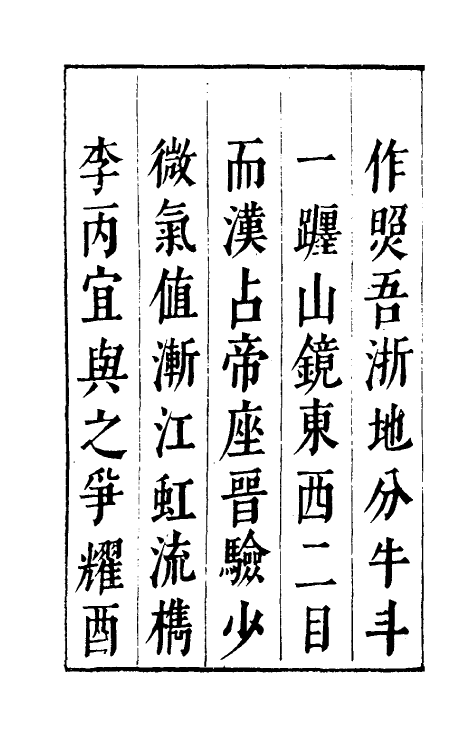 作煚吾浙地分牛斗
一躔山鏡東西二目
而漢占帝座晉驗少
微氣值漸江虹流檇
李丙宜與之爭耀酉